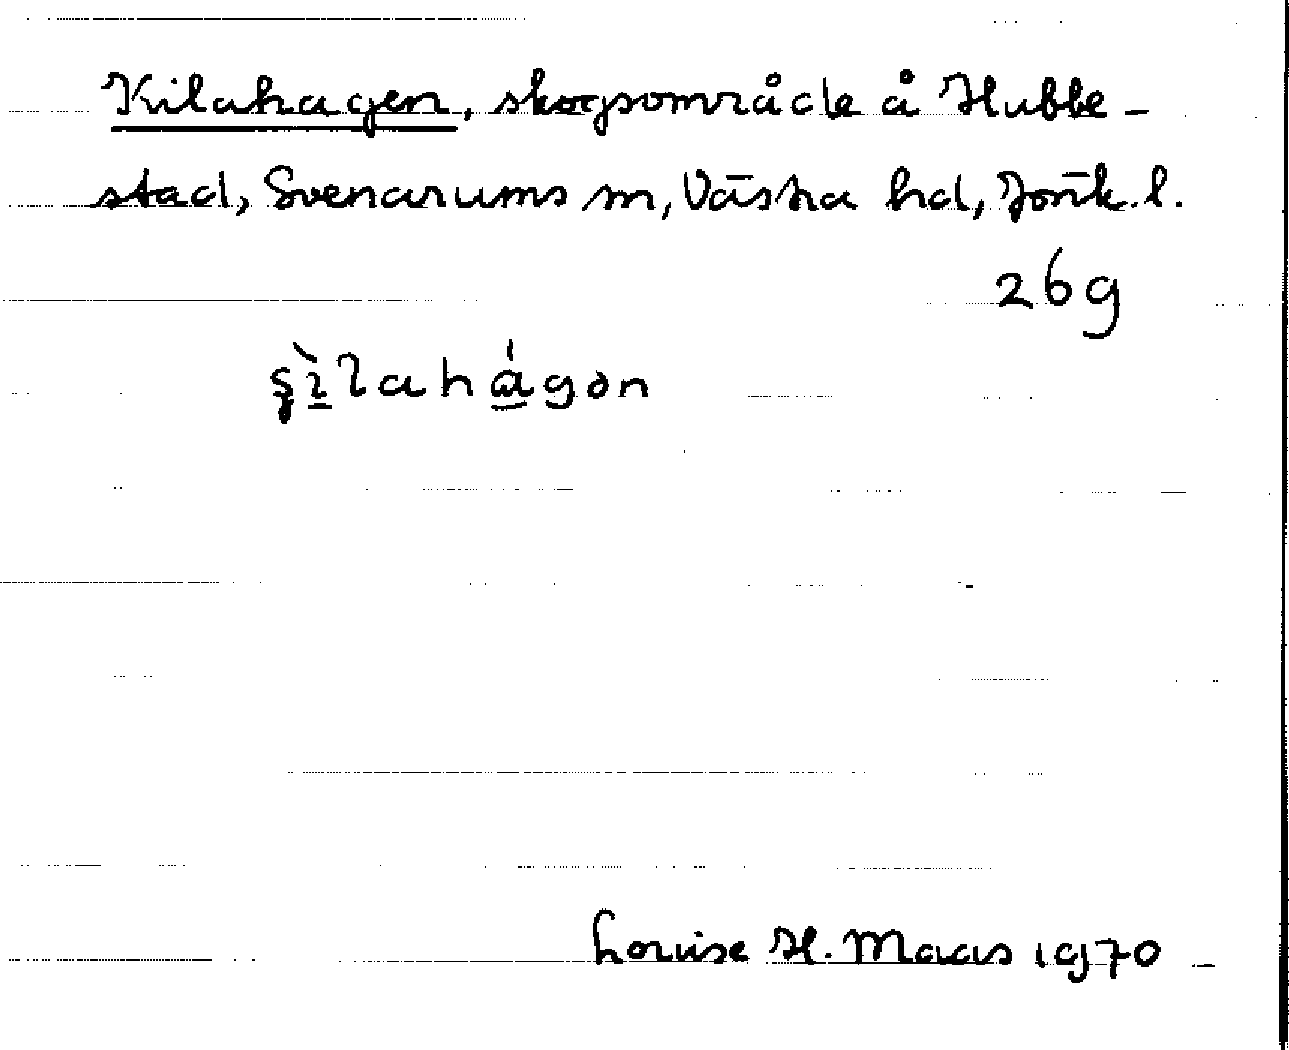 Kilahagen, skogsområde å Hubbe-
stad, Svenarums sn, Västra hd, Jönk. l.
26g
Louise H. Maas 1970